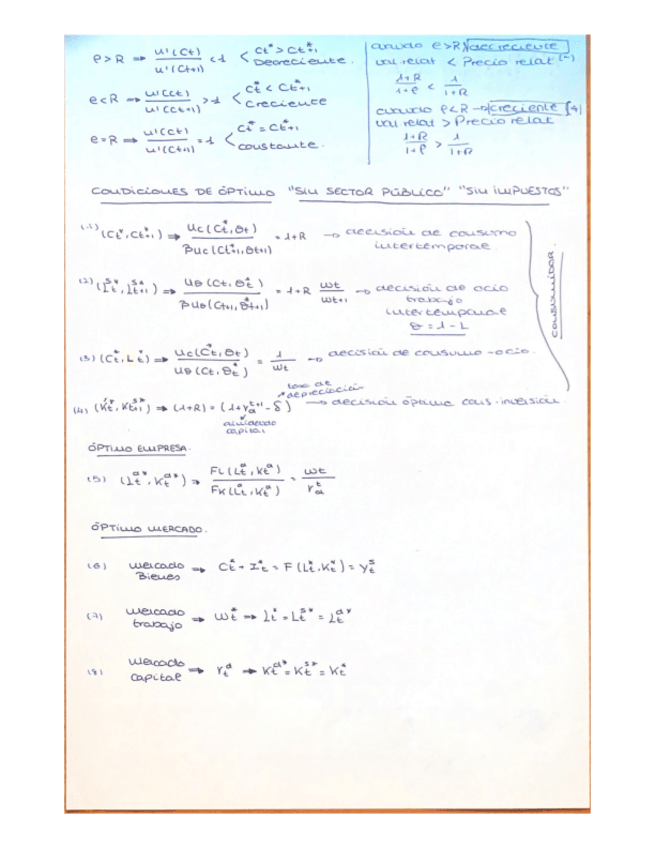 ρ > R ⇒ u'(Ct) / u'(Ct+1) < 1 < Ct* > Ct*+1 Decreciente.
ρ < R ⇒ u'(Ct) / u'(Ct+1) > 1 < Ct* < Ct*+1 Creciente
ρ = R ⇒ u'(Ct) / u'(Ct+1) = 1 < Ct* = Ct*+1 constante.
cuando ρ > R → decreciente
val relat < Precio relat (-)
1+R / 1+ρ < 1 / 1+R
cuando ρ < R → creciente (+)
val relat > Precio relat
1+R / 1+ρ > 1 / 1+R
CONDICIONES DE ÓPTIMO "SIN SECTOR PÚBLICO" "SIN IMPUESTOS"
(1) (Ct*, Ct*+1) ⇒ Uc(Ct*, Θt) / βUc(Ct*+1, Θt+1) = 1+R → decisión de consumo intertemporal
(2) (Lt^s*, Lt+1^s*) ⇒ UΘ(Ct, Θt*) / βUΘ(Ct+1, Θ*t+1) = 1+R wt / wt+1 → decisión de ocio
trabajo
intertemporal
Θ = 1 - L
(3) (Ct*, Lt*) ⇒ Uc(Ct*, Θt) / UΘ(Ct, Θt*) = 1 / wt → decisión de consumo - ocio.
tasa de depreciación
(4) (Kt^s*, Kt+1^s*) ⇒ (1+R) = (1+ra^t+1 - δ) → decisión óptima cons-inversión.
alquilando capital
CONSUMIDOR.
ÓPTIMO EMPRESA.
(5) (Lt^d*, Kt^d*) ⇒ FL(Lt^d, Kt^d) / FK(Lt^d, Kt^d) = wt / ra^t
ÓPTIMO MERCADO.
(6) Mercado Bienes ⇒ Ct* + It* = F(Lt*, Kt*) = Yt^s
(7) Mercado trabajo ⇒ wt* ⇒ Lt* = Lt^s* = Lt^d*
(8) Mercado capital ⇒ rt^a → Kt^d* = Kt^s* = Kt*